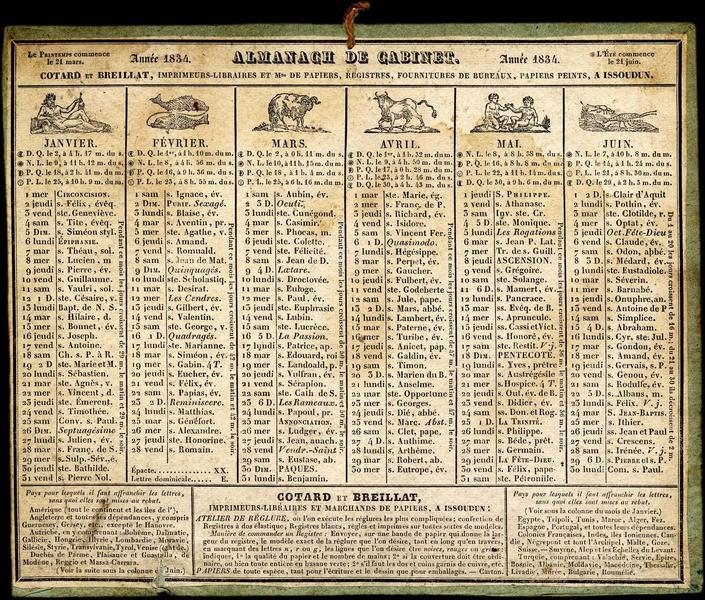 Le Printemps commence
le 21 mars.
Année 1834.
ALMANACH DE CABINET.
Année 1834.
L'Été commence
le 21 juin.
COTARD ET BREILLAT, IMPRIMEURS-LIBRAIRES ET Mds DE PAPIERS, REGISTRES, FOURNITURES DE BUREAUX, PAPIERS PEINTS, A ISSOUDUN.
JANVIER.
D. Q. le 2, à 4 h. 17 m. du s.
N. L. le 9, à 11 h. 12 m. du s.
P. Q. le 18, à 2 h. 11 m. du s.
P. L. le 25, à 10 h. 2 m. du s.
1 mer Circoncision.
2 jeudi s. Félix, évêq.
3 vend ste. Geneviève.
4 sam s. Tite, évêq.
5 Dim. s. Siméon sty
6 lundi Épiphanie.
7 mar s. Théau, sol.
8 mer s. Lucien, m
9 jeudi s. Pierre, év.
10 vend s. Guillaume.
11 sam s. Vudri, sol.
12 1 D ste. Césaire, v.
13 lundi Bapt. de N. S.
14 mar s. Hilaire, d.
15 mer s. Bonnet, év.
16 jeudi s. Joseph.
17 vend s. Antoine.
18 sam Ch. s. P. à R.
19 2 D ste. Marie et M.
20 lundi s. Sébastien.
21 mar ste. Agnès, v.
22 mer s. Vincent, d.
23 jeudi ste. Emerent.
24 vend s. Timothée.
25 sam Conv. s. Paul
26 Dim. Septuagésime
27 lundi s. Julien, év.
28 mar s. Franç. de S.
29 mer s. Sulp.-Sév., é.
30 jeudi ste. Bathilde.
31 vend s. Pierre Nol.
FÉVRIER.
1 sam s. Ignace.
2 Dim. Purif. Sexagé.
3 lundi s. Blaise, év.
4 mar s. Aventin, pr.
5 mer ste. Agathe, v.
6 jeudi s. Amand.
7 vend s. Romuald.
8 sam s. Jean de Mat.
9 Dim. Quinquagés.
10 lundi ste. Scholastiq.
11 mar s. Desirat.
12 mer Les Cendres.
13 jeudi s. Gilbert, év.
14 vend s. Valentin.
15 sam ste. George, v.
16 1 D Quadragés.
17 lundi ste. Marianne.
18 mar s. Siméon, év.
19 mer s. Gabin. 4 T.
20 jeudi s. Eucher, év.
21 vend s. Félix, év.
22 sam s. Papias, év.
23 2 D. Reminiscere.
24 lundi s. Matthias.
25 mar s. Généfort.
26 mer s. Alexandre.
27 jeudi ste. Honorine.
28 vend s. Romain.
Épacte XX.
Lettre dominicale E.
MARS.
1 sam s. Aubin, év.
2 3 D. Oculi.
3 lundi ste. Cunégond.
4 mar s. Casimir.
5 mer s. Phocas, m.
6 jeudi ste. Colette.
7 vend ste. Félicité.
8 sam s. Jean de D.
9 4 D. Lætare.
10 lundi s. Droctovée.
11 mar s. Euloge.
12 mer s. Paul, év.
13 jeudi ste. Euphrasie
14 vend s. Lubin.
15 sam ste. Lucrèce.
16 5 D. La Passion.
17 lundi s. Patrice, ap.
18 mar s. Edouard, roi
19 mer s. Landoald, p.
20 jeudi s. Vulfran, év.
21 vend s. Sérapion.
22 sam ste. Cath. de S.
23 6 D. Les Rameaux.
24 lundi s. Papoul, pr.
25 mar Annonciation.
26 mer s. Ludger, év.
27 jeudi s. Jean, anach.
28 vend Vendr.-Saint
29 sam s. Eustase, ab.
30 Dim. PÂQUES.
31 lundi s. Benjamin.
AVRIL.
1 mar ste. Marie, ég.
2 mer s. Franç. de P.
3 jeudi s. Richard, év.
4 vend s. Isidore.
5 sam s. Vincent Fer.
6 1 D. Quasimodo.
7 lundi s. Hégésippe.
8 mar s. Perpet, év.
9 mer s. Gaucher.
10 jeudi s. Fulbert, év.
11 vend ste. Godeberte
12 sam s. Jule, pape.
13 2 D. s. Mars, abbé.
14 lundi s. Lambert, év.
15 mar s. Paterne, év.
16 mer s. Turibe, év.
17 jeudi s. Anicet, pap.
18 vend s. Galdin, év.
19 sam s. Timon.
20 3 D. s. Marien du B.
21 lundi s. Anselme.
22 mar ste. Opportune
23 mer s. Georges.
24 jeudi s. Dié, abbé.
25 vend s. Marc. Abst.
26 sam s. Clet, pape.
27 4 D. s. Anthime.
28 lundi s. Arthême.
29 mar s. Robert, ab.
30 mer s. Eutrope, év.
MAI.
1 jeudi S. Philippe.
2 vend s. Athanase.
3 sam Inv. ste. Cr.
4 5 D. ste. Monique.
5 lundi Les Rogations
6 mar s. Jean P. Lat.
7 mer Tr. de s. Guill.
8 jeudi ASCENSION.
9 vend s. Grégoire.
10 sam ste. Solange.
11 6 D. s. Mamert, év.
12 lundi s. Pancrace.
13 mar ss. Evêq. de B.
14 mer s. Apruncule.
15 jeudi ss. Cassi et Vict.
16 vend s. Honoré, év.
17 sam ste. Restit. V. J.
18 Dim. PENTECÔTE.
19 lundi s. Yves, prêtre
20 mar s. Austrégésile
21 mer s. Hospice. 4 T.
22 jeudi s. Oul, év. de B.
23 vend s. Didier, év.
24 sam ss. Don. et Rog.
25 1 D. La Trinité.
26 lundi s. Philippe.
27 mar s. Béde, prêt.
28 mer s. Germain.
29 jeudi La Fête-Dieu
30 vend s. Félix, pape
31 sam ste. Pétronille.
JUIN.
1 2 D. s. Clair d'Aquit
2 lundi s. Pothin, év.
3 mar ste. Clotilde,
4 mer s. Optat, év.
5 jeudi Oct. Fête-Dieu
6 vend s. Claude, év.
7 sam s. Odon, abbé
8 3 D. s. Médard, év.
9 lundi ste. Eustadiole.
10 mar s. Séverin.
11 mer s. Barnabé.
12 jeudi s. Onuphre, an.
13 vend s. Antoine de P
14 sam s. Simplice.
15 4 D. s. Abraham.
16 lundi s. Cyr, ste. Jul.
17 mar s. Gondou, év.
18 mer s. Amand, év.
19 jeudi s. Gervais, s. P.
20 vend s. Genou, év.
21 sam s. Rodulfe, év.
22 5 D. s. Albans, m.
23 lundi s. Félix. V. j.
24 mar S. Jean-Baptis.
25 mer s. Ithier.
26 jeudi ss. Jean et Paul
27 vend s. Crescens.
28 sam s. Irénée. V. j.
29 6 D. s. Pierre et s. P.
30 lundi Com. s. Paul.
Pays pour lesquels il faut affranchir les lettres,
sans quoi elles sont mises au rebut.
Amérique (tout le continent et les îles de l').
Angleterre et toutes ses dépendances, y compris
Guernesey, Gersey, et excepté le Hanovre.
Autriche, en y comprenant Bohème, Dalmatie,
Gallicie, Hongrie, Illyrie, Lombardie, Moravie,
Silésie, Styrie, Transylvanie, Tyrol, Venise
Duchés de Parme, Plaisance et Guastalla, de
Modène, Reggio et Massa-Carrara.
(Voir la suite sous la colonne de Juin.)
COTARD ET BREILLAT,
IMPRIMEURS-LIBRAIRES ET MARCHANDS DE PAPIERS, A ISSOUDUN:
ATELIER DE RÉGLURE, où l'on exécute les réglures les plus compliquées; confection de
Registres à dos élastique, Registres blancs, réglés et imprimés sur toutes sortes de modèles.
Manière de commander un Registre: Envoyer, sur une bande de papier qui donnera la lar-
geur du registre, le modèle exact de la réglure que l'on désire, tant en long qu'en travers,
en marquant des lettres n, r ou g, les lignes que l'on désire être noires, rouges ou grises;
indiquer, 1° la qualité du papier et le nombre de mains; 2° si la couverture doit être ordi-
naire, ou bien toute entière en basane verte; 3° s'il faut les dos et coins garnis de cuivre, etc.
PAPIERS de toute espèce, tant pour l'écriture et le dessin que pour emballages. — Carton.
Pays pour lesquels il faut affranchir les lettres,
sans quoi elles sont mises au rebut.
(Voir sous la colonne du mois de Janvier.)
Egypte, Tripoli, Tunis, Maroc, Alger, Fez.
Espagne, Portugal, et toutes leurs dépendances.
Colonies Françaises, Indes, îles Ioniennes, Can-
die, Négrepont et tout l'Archipel, Malte, Grèce,
Suisse, Smyrne, Alep et les Échelles du Levant.
Turquie, comprenant: Valachie, Servie, Epire,
Bosnie, Albanie, Moldavie, Macédoine, Thessalie,
Livadie, Morée, Bulgarie, Roumélie.